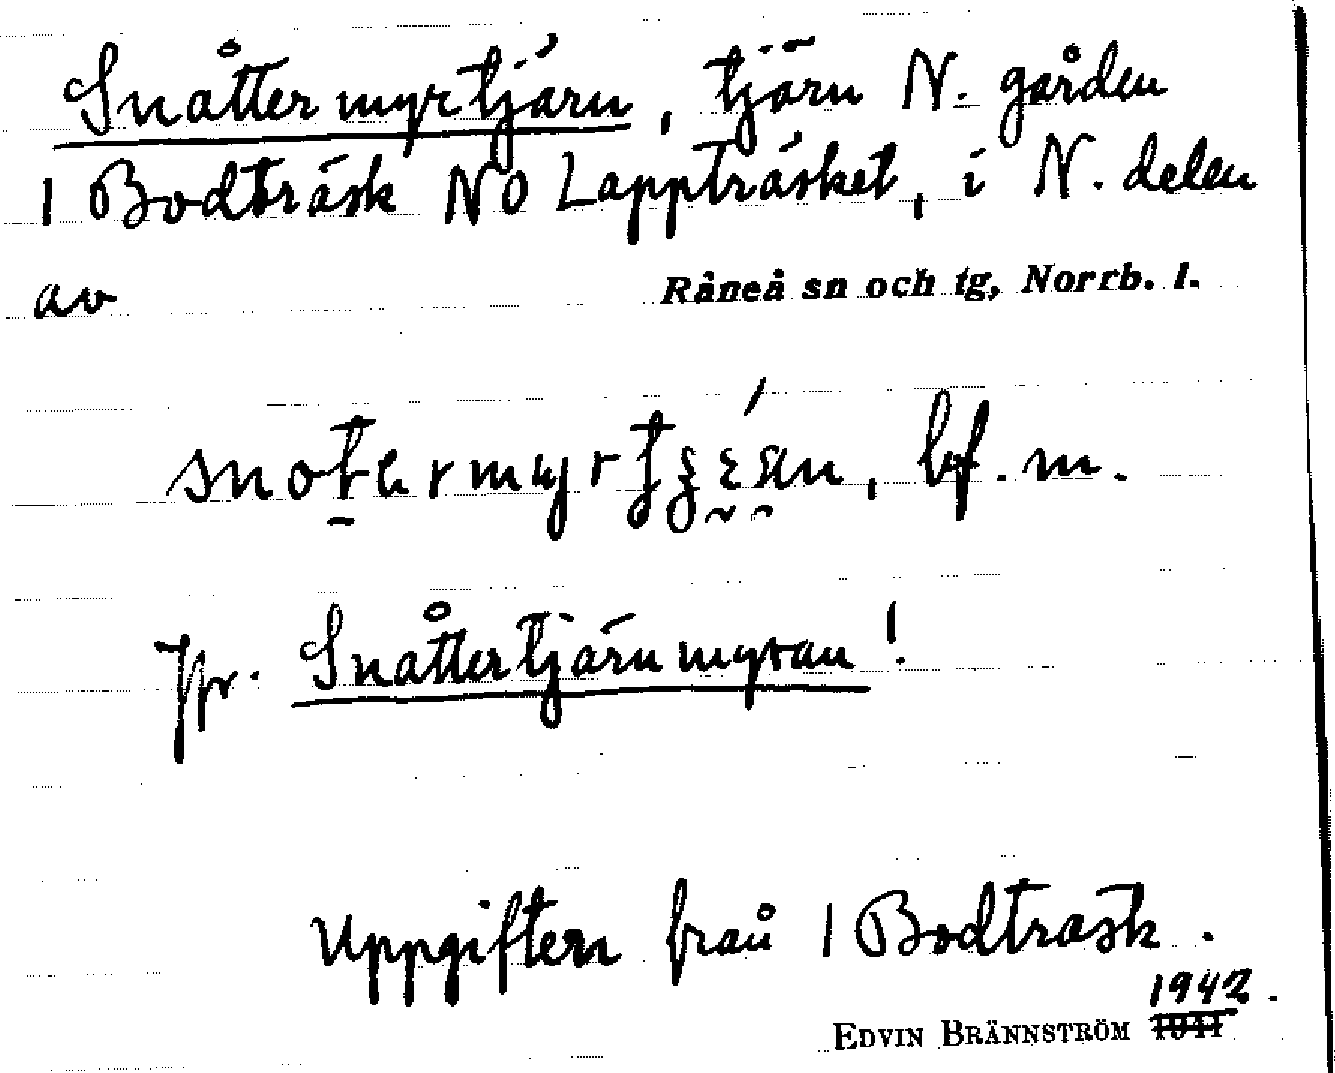 Snåttermyrtjärn, tjärn N. gården
1 Bodträsk NO Lappträsket, i N. delen
av Råneå sn och tg, Norrb. l.
bf. m.
Jfr. Snåttertjärnmyran!
Uppgiften från 1 Bodträsk.
1942.
EDVIN BRÄNNSTRÖM 1941